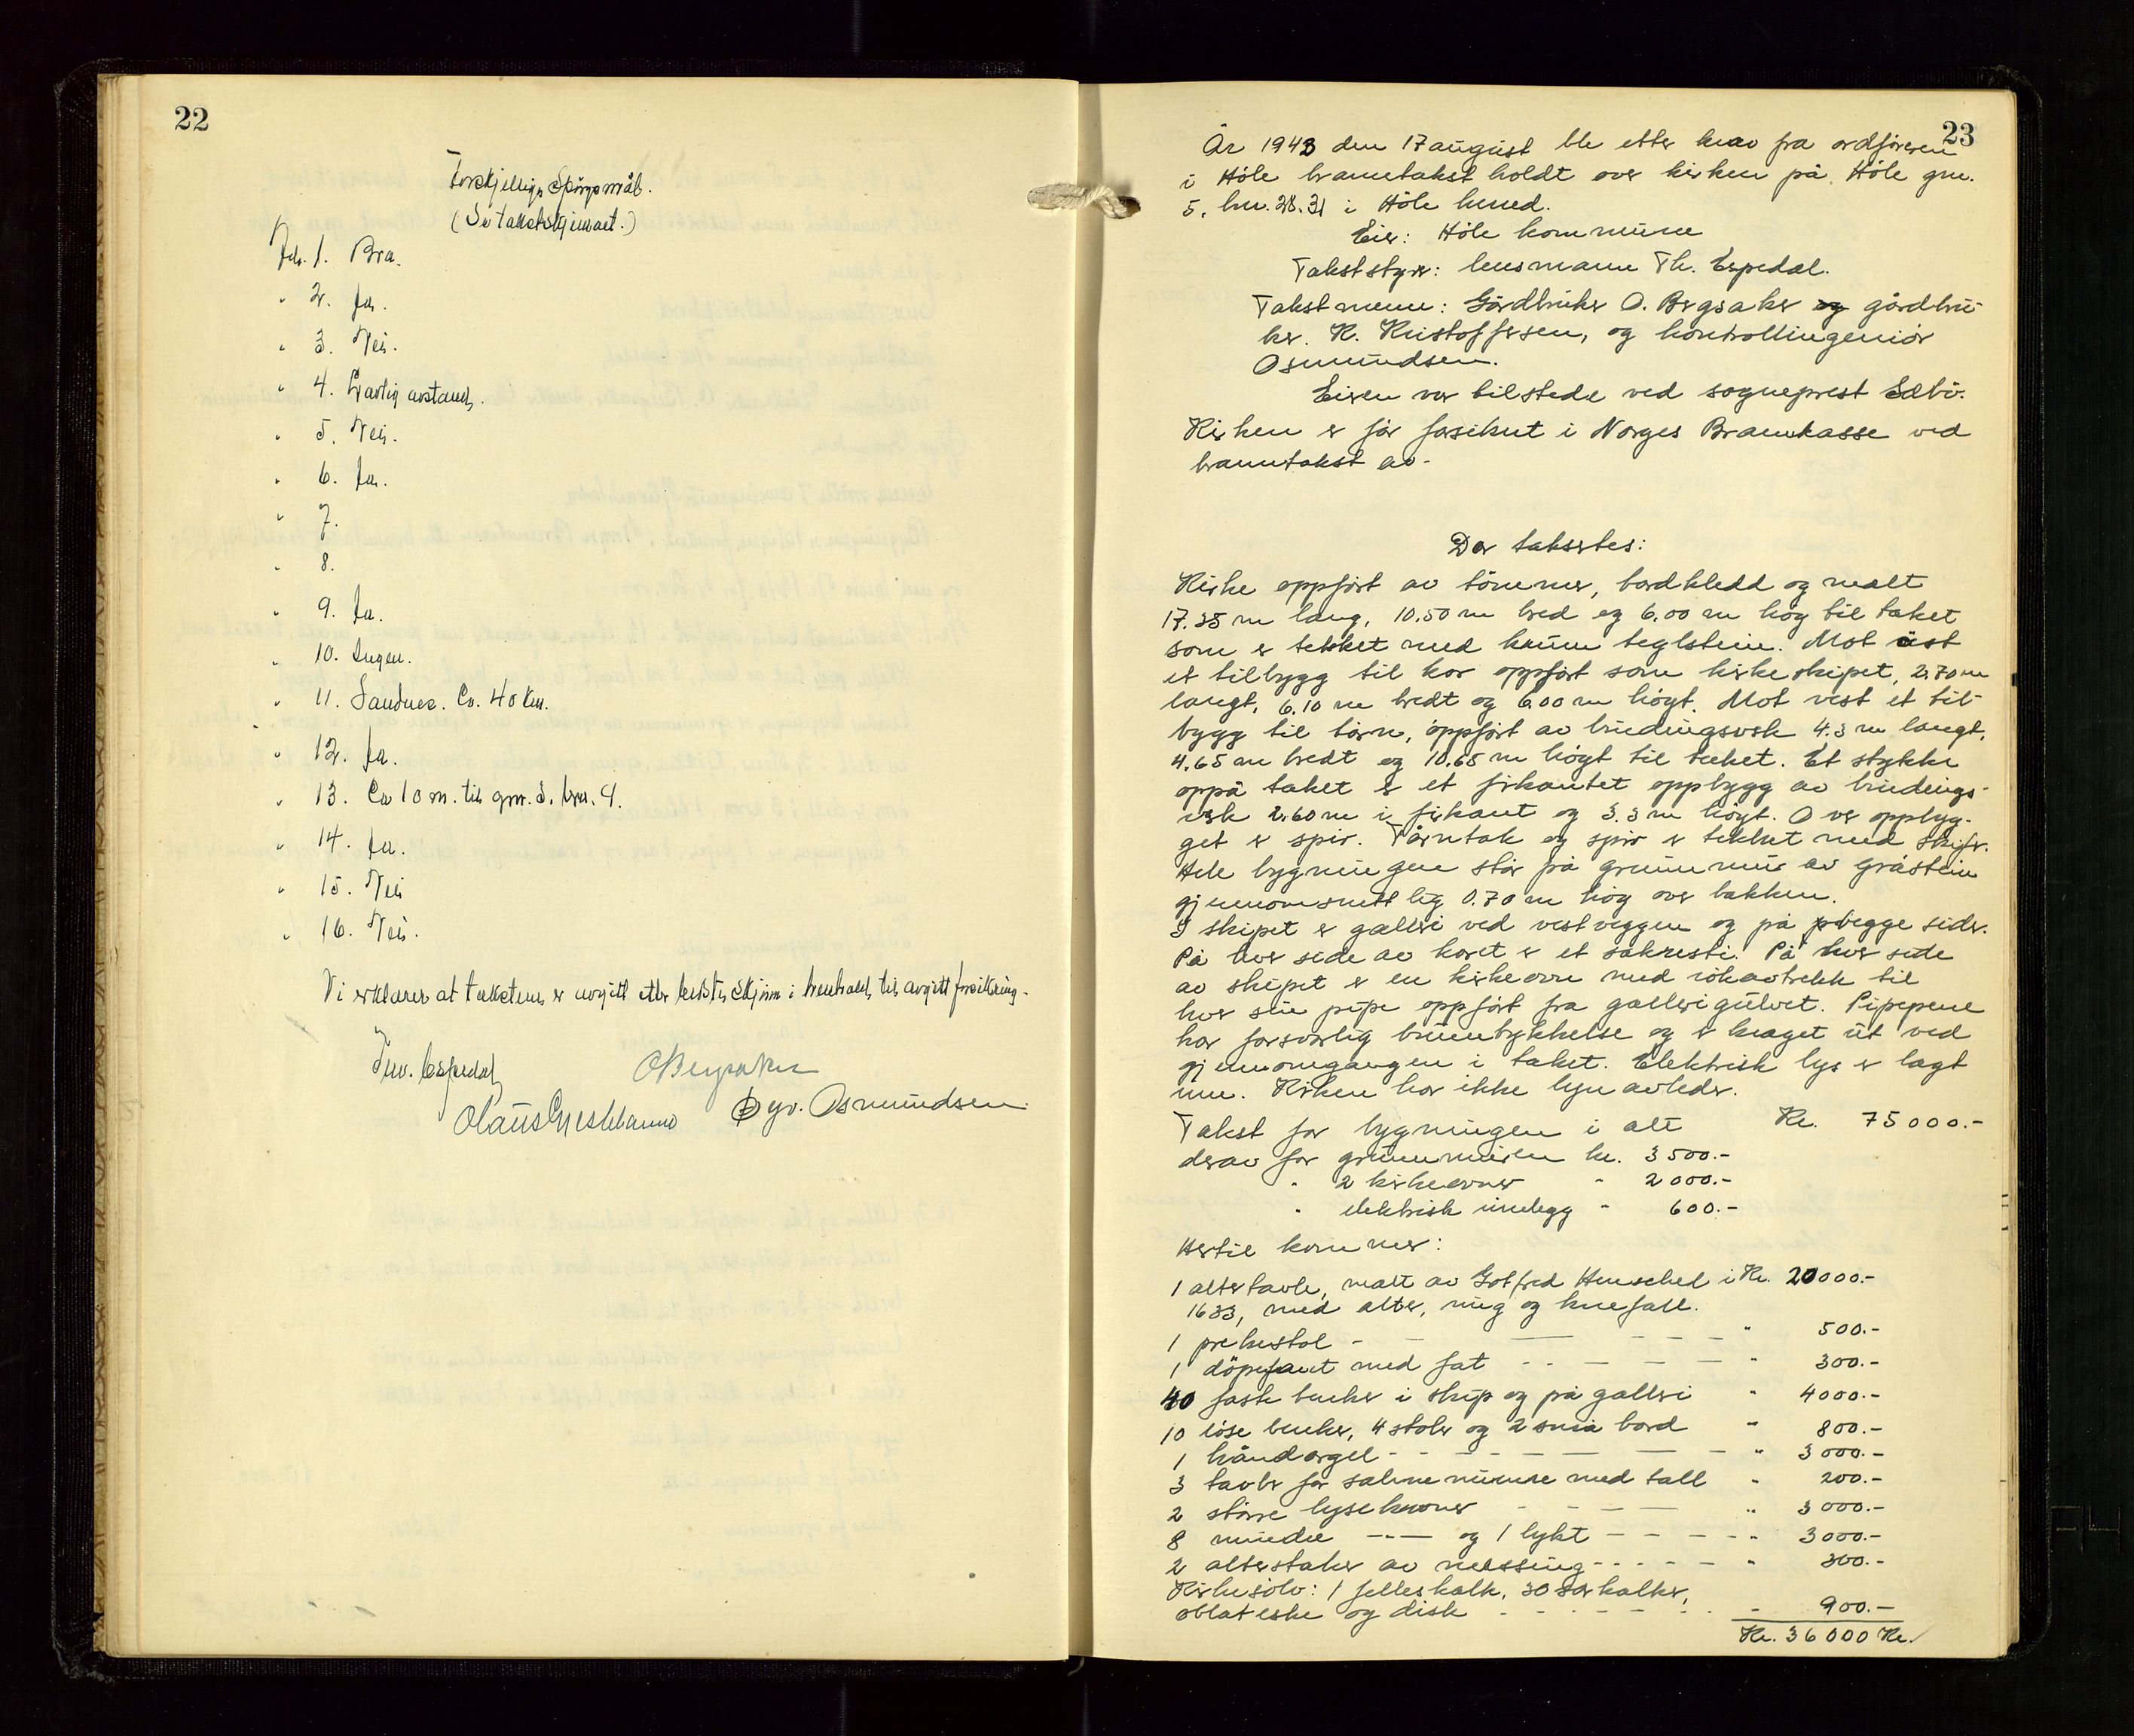 22
Forskjellige Spörgsmål.
(Se takstskjemaet.)
1. Bra.
" 2. Ja.
" 3. Nei.
" 4. Lovlig avstand.
" 5. Nei.
" 6. Ja.
" 7.
" 8.
" 9. Ja.
" 10. Ingen.
" 11. Sandnes. Ca. 40 km.
" 12. Ja.
" 13. Ca 10 m. til gnr. 5. bnr. 4.
" 14. Ja.
" 15. Nei
" 16. Nei.
Vi erklærer at taksten er avgitt etter beste skjönn i henhold til avgitt forsikring.
Espedal
OBergsaker
Olaus
Osmundsen
23
År 1943 den 17 august ble etter krav fra ordföreren
i Höle branntakst holdt over kirken på Höle gnr.
5. bnr. 28.31 i Höle herred.
Eier: Höle kommune
Takststyrer: lensmann Th. Espedal.
Takstmenn: Gårdbruker O. Bergsaker og gårdbru-
ker. K. Kristoffersen, og kontrollingeniör
Osmundsen.
Eieren var tilstede ved sogneprest Sæbö.
Kirken er för forsikret i Norges Brannkasse ved
branntakst av-
Der taksertes:
Kirke oppfört av tömmer, bordkledd og malt
17.35 m lang, 10.50 m bred og 6.00 m hög til taket
som er tekket med krum teglstein. Mot öst
et tilbygg til kor oppfört som kirkeskipet, 2.70 m
langt, 6.10 m bredt og 6.00 m högt. Mot vest et til-
bygg til tårn, oppfört av bindingsverk 4.3 m langt,
4.65 m bredt og 10.65 m högt til taket. Et stykke
oppå taket er et firkantet oppbygg av bindings-
verk 2.60 m i firkant og 3.3 m högt. Over oppbyg-
get er spir. Tårntak og spir er tekket med skifer.
Hele bygningen står på grunnmur av gråstein
gjennomsnittlig 0.70 m hög over bakken.
I skipet er galleri ved vestveggen og på begge sider.
På hver side av koret er et sakresti. På hver side
av skipet er en kirkeovn med rökavtrekk til
hver sin pipe oppfört fra gallerigulvet. Pipepene
har forsvarlig brenntykkelse og er kraget ut ved
gjennomgangen i taket. Elektrisk lys er lagt
inn. Kirken har ikke lynavleder.
Takst for bygningen i alt Kr. 75000.-
derav for grunnmuren kr. 3500.-
" 2 kirkeovner " 2000.-
" elektrisk innlegg " 600.-
Hertil kommer:
1 altertavle, malt av Gotfred Henschel i Kr. 20000.-
1633, med alter, ring og knefall.
1 prekestol - " 500.-
1 döpefont med fat " 300.-
40 faste benker i skip og på galleri " 4000.-
10 löse benker, 4 stoler og 2 små bord " 800.-
1 håndorgel " 3000.-
3 tavler for salmenumre med tall " 200.-
2 större lysekroner " 3000.-
8 mindre -"- og 1 lykt " 3000.-
2 alterstaker av messing " 300.-
Kirkesölv: 1 felleskalk, 30 særkalker,
oblateske og disk " 900.-
Kr. 36000 Kr.